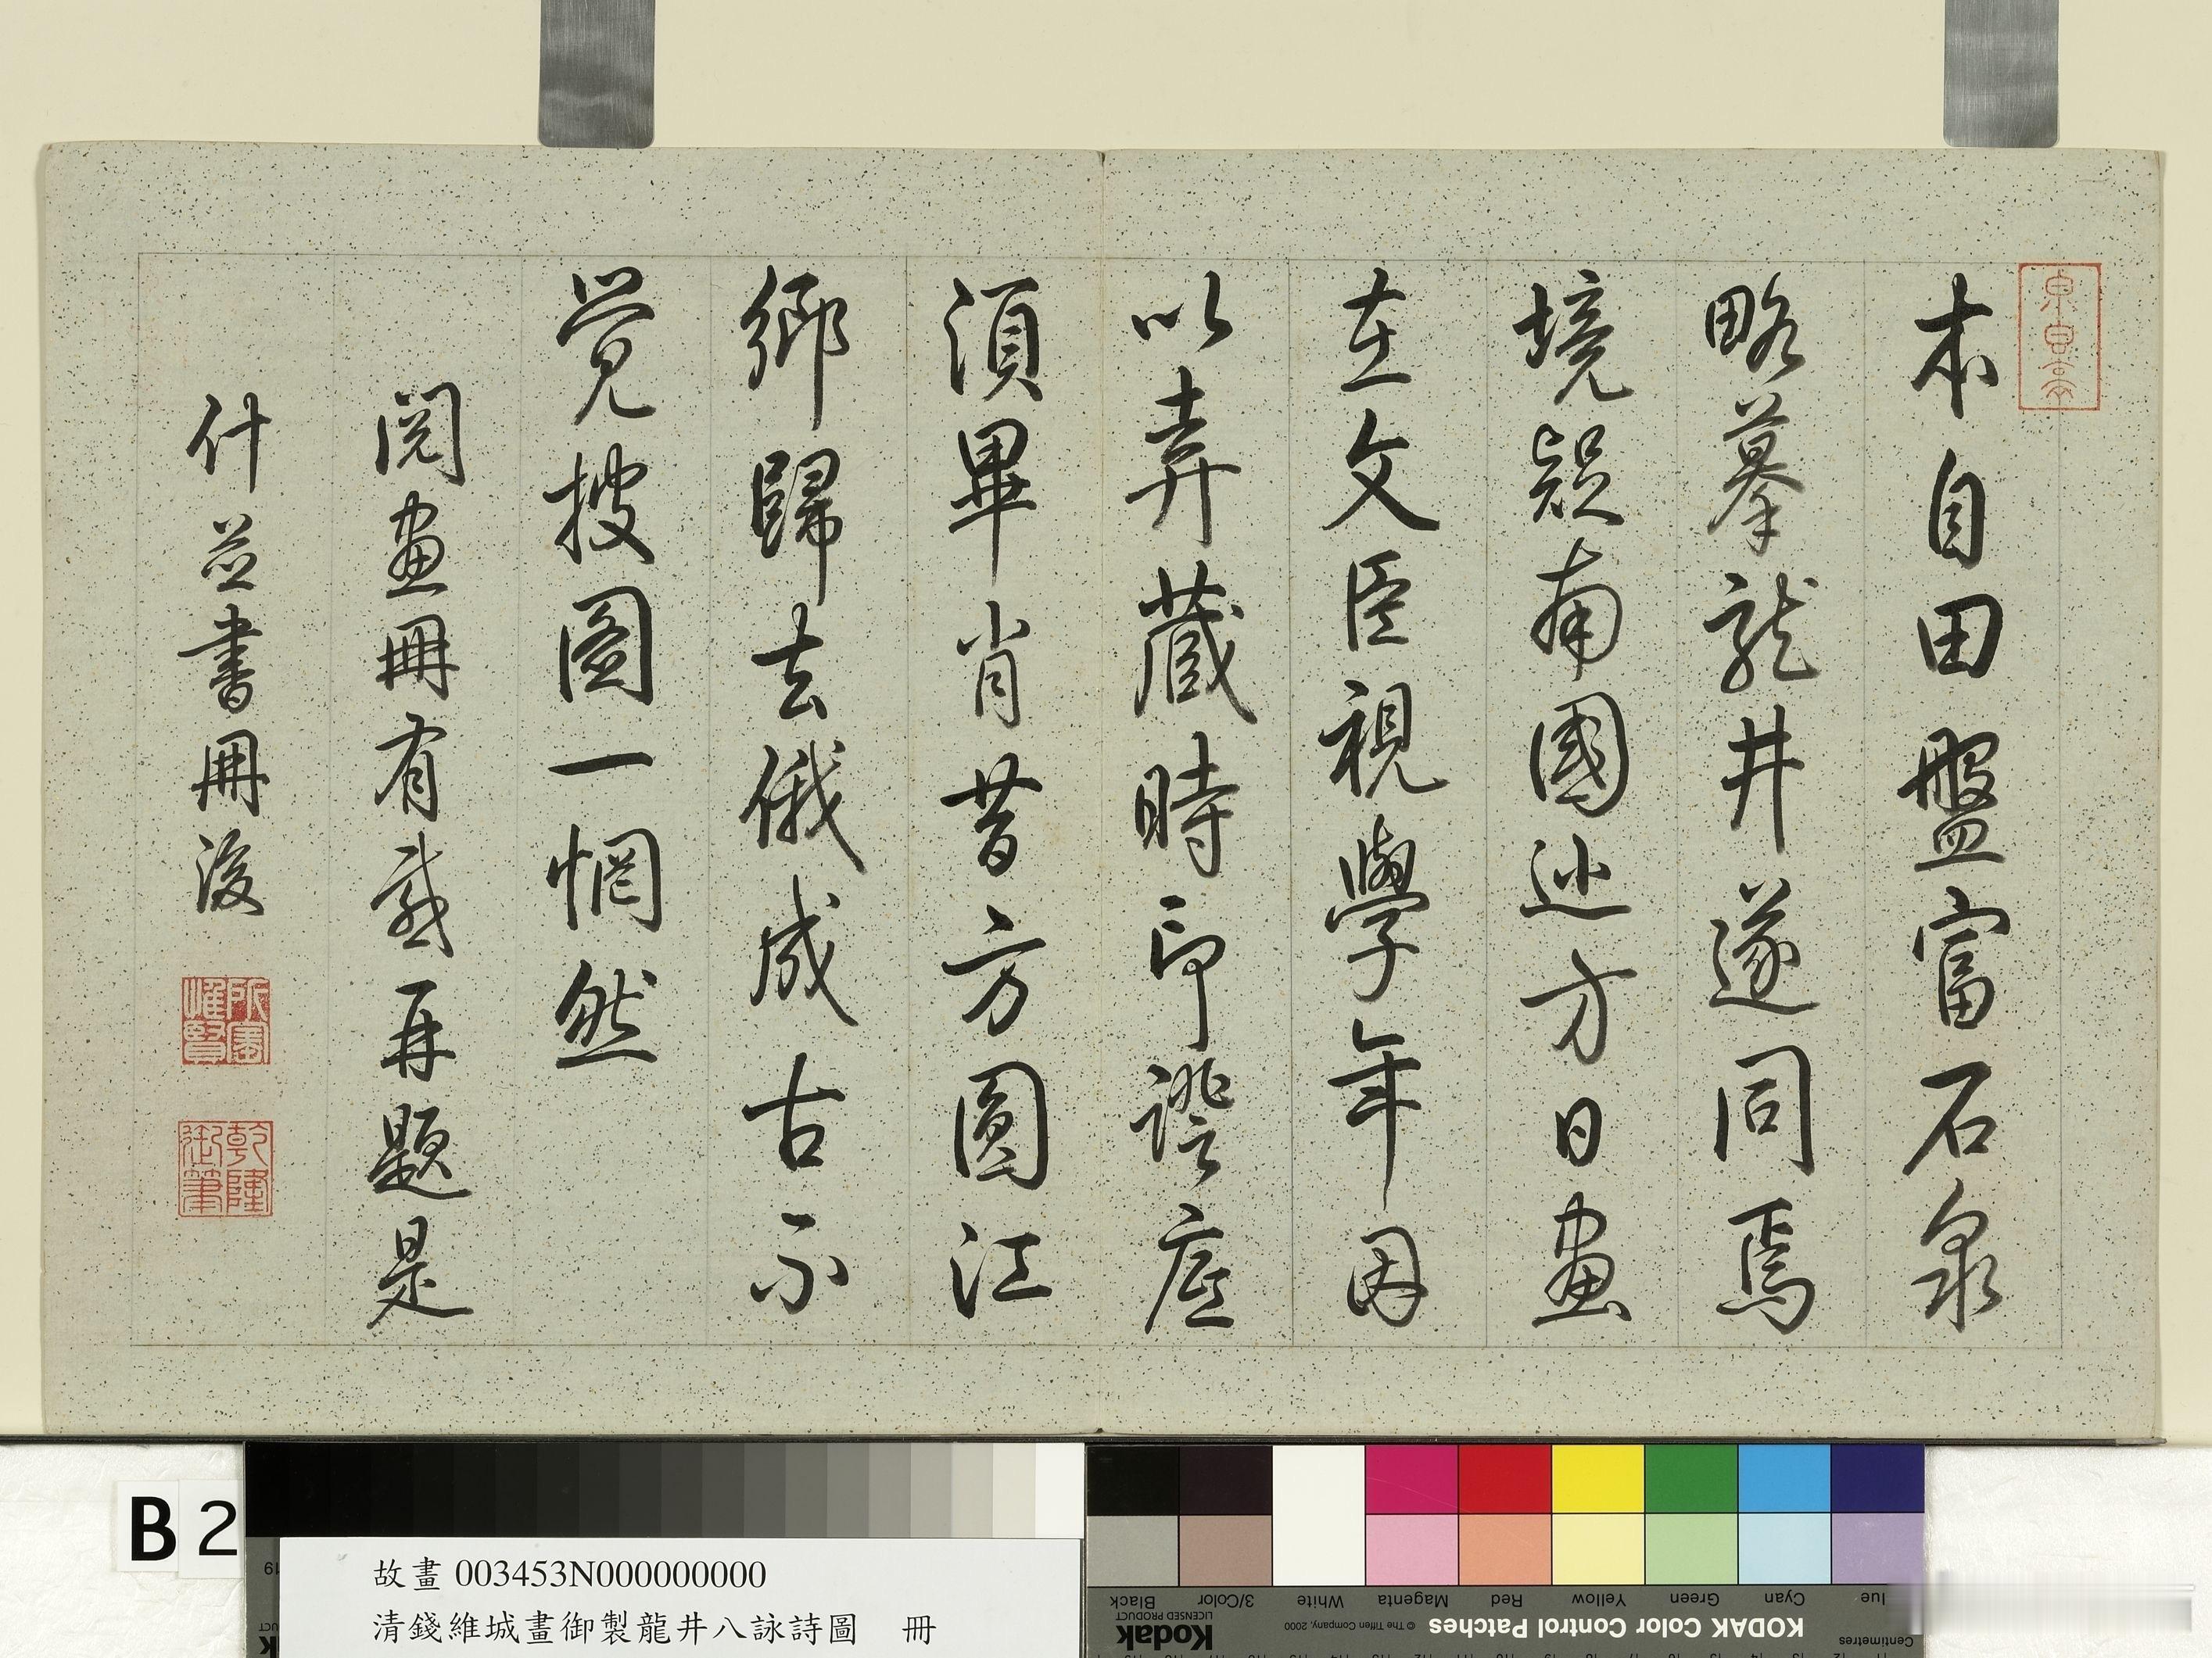 本自田盤富石泉
略摹龍井遂同焉
境疑南國巡方日畫
在文臣視學年因
以弆藏時印證底
須畢肖昔方圓江
鄉歸去俄成古不
覺披圖一惘然
閱畫冊有感再題是
什並書冊後
所寶惟賢
乾隆御筆
B 2
故畫 003453N000000000
清錢維城畫御製龍井八詠詩圖 冊
KODAK Color Control Patches
© The Tiffen Company, 2000
Kodak
LICENSED PRODUCT
Centimetres
lue
Cyan
Green
Yellow
Red
Magenta
White
3/Color
Black
19